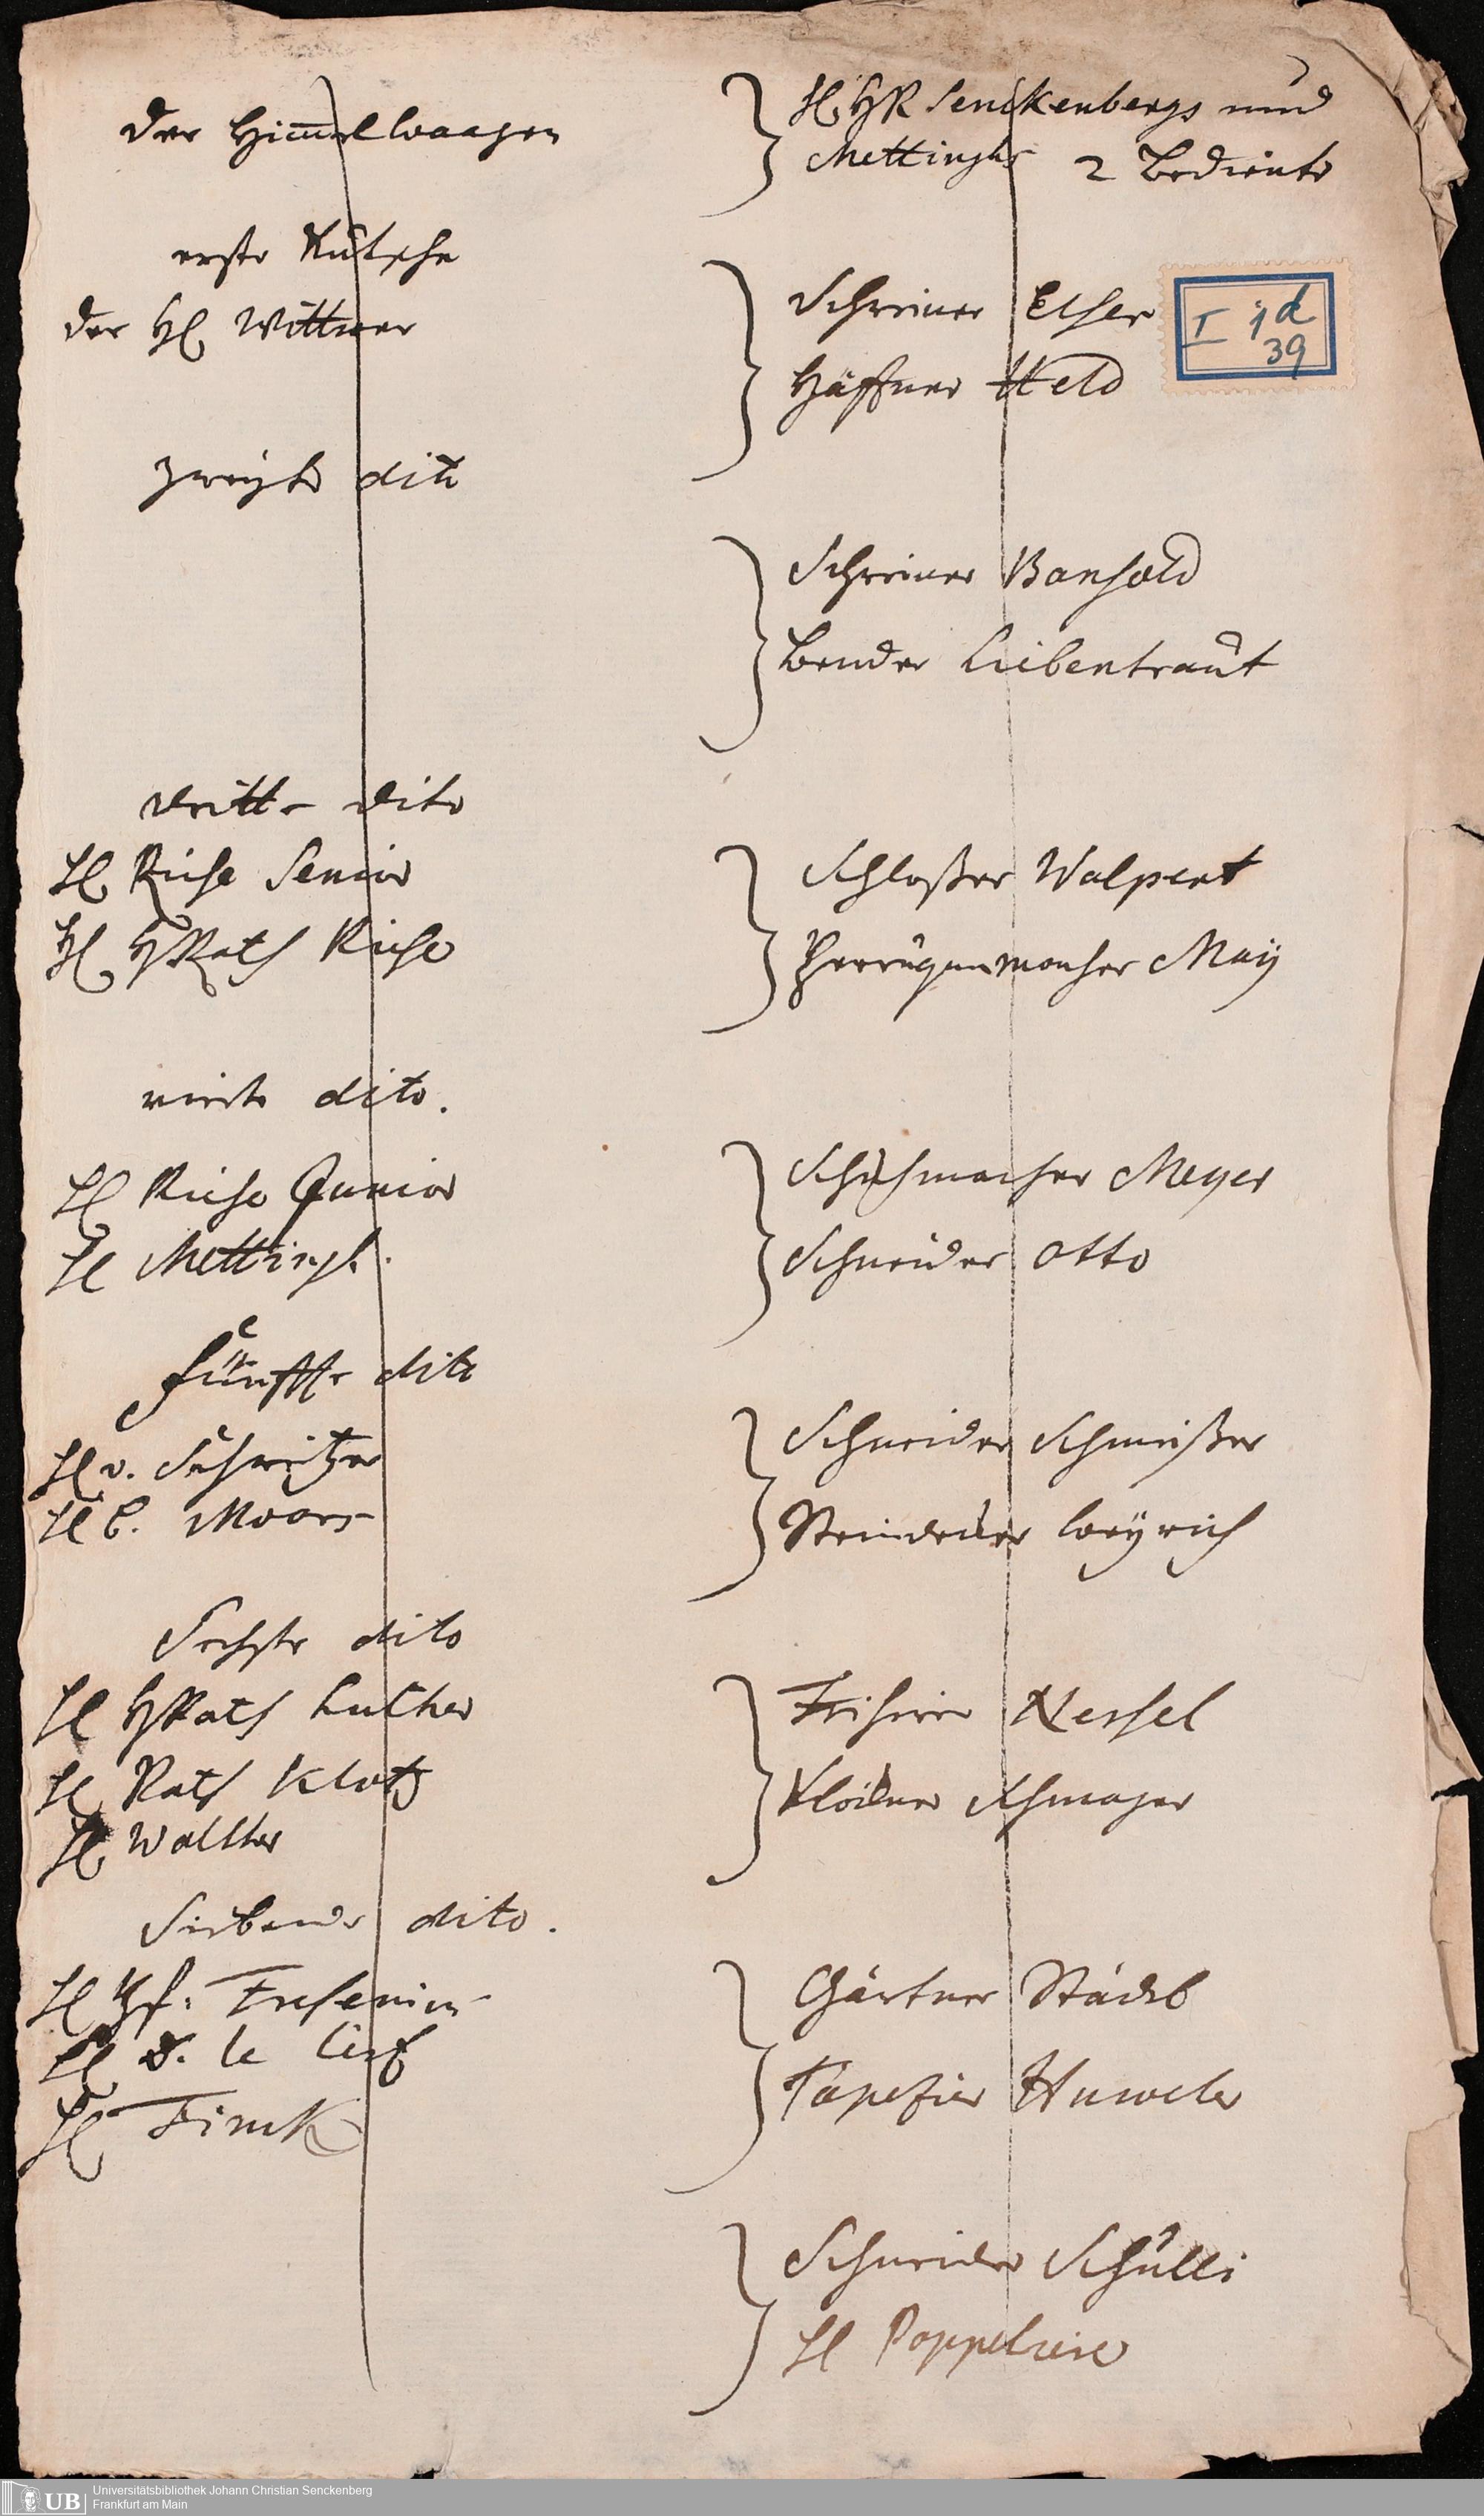 der Himmelwaagen
erste Kutsche
der H Wittwer
zweyte dito
dritte dito
H Riese Senior
H HRath Riese
vierte dito.
H Riese Junior
H Mettingh.
fünffte dito
H v. Schweitzer
H C. Moors
Sechste dito
H HRath Luther
H Rath Klotz
H Walther
Siebende dito.
H Fresenius
H D. le Cerf
H Finck
H HR Senckenbergs und
Mettinghs 2 Bediente
Schreiner Elser
Häffner Held
Schreiner Bansold
Bender Liebentraut
Schloßer Walpert
Perrüquenmacher May
Schuhmacher Meyer
Schneider Otto
Schneider Schmeißer
Steindecker Weyrich
Frisirer Nessel
Kleidner Schwager
Gärtner Städel
Tapezier Huweler
Schneider Schülli
H Poppelreie
I 1d
39
Universitätsbibliothek Johann Christian Senckenberg
UB Frankfurt am Main